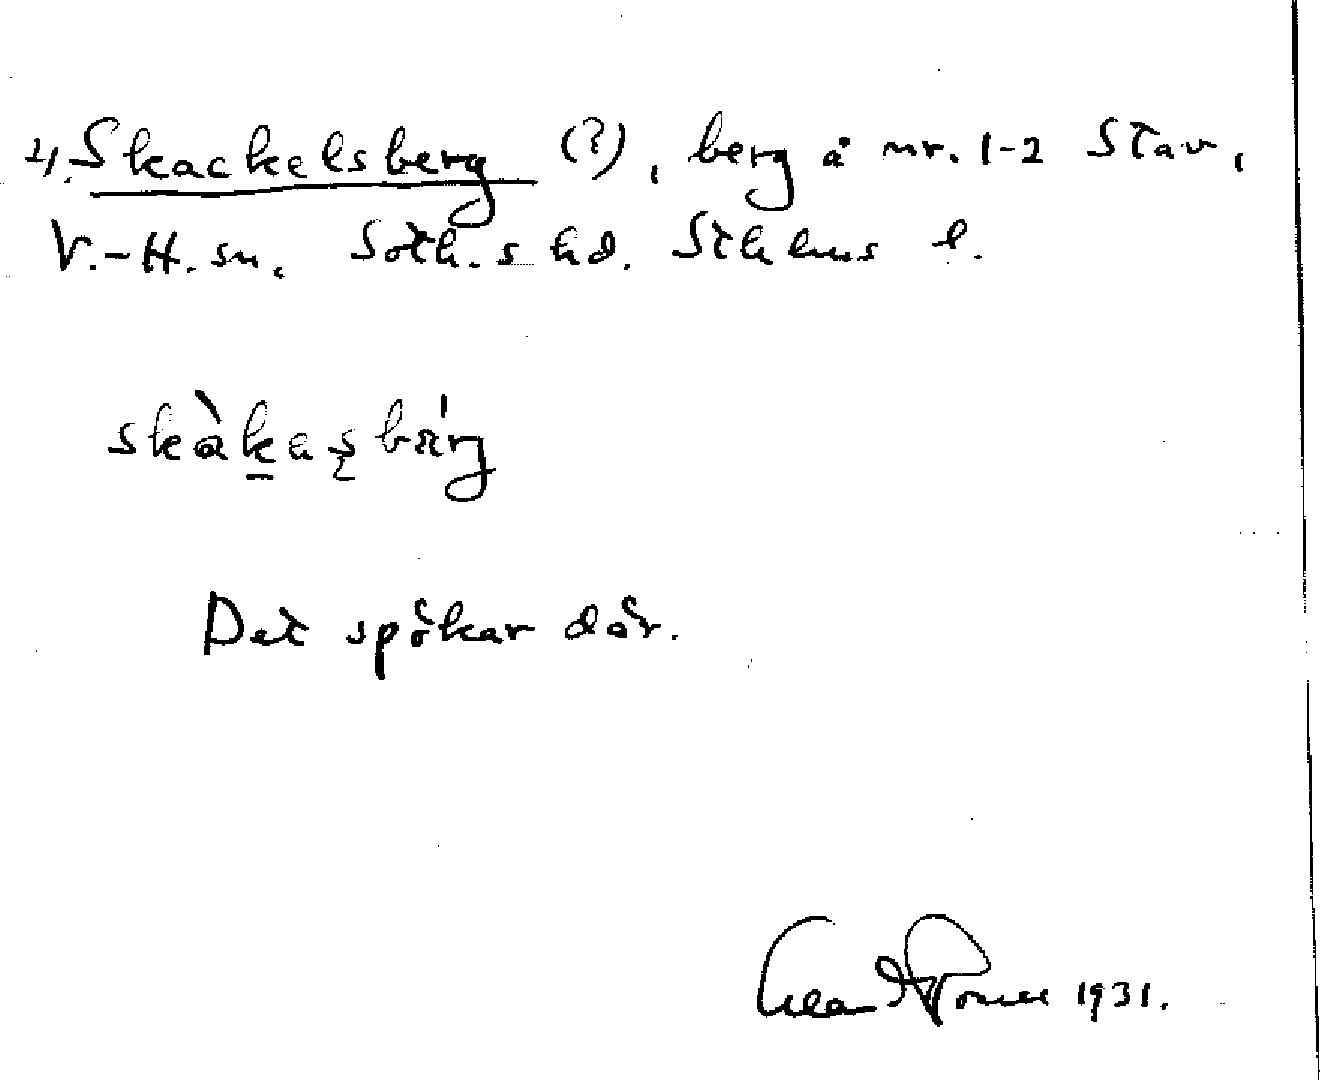 4. Skackelsberg (?), berg å nr. 1-2 Stav,
V.-H. sn. Soth.s hd. Sthlms l.
skàka̠sbärg
Det spökar där.
1931.